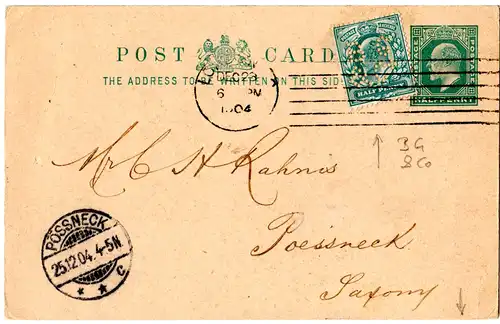 POST CARD
THE ADDRESS TO BE WRITTEN ON THIS SIDE
POSTAGE REVENUE
HALFPENNY
DEC 23
6 PM
1904
HALFPENNY
BG
& Co
Mr C H Rahnis
Poessneck
Saxony
PÖSSNECK
25.12.04. 4-5N
* * C